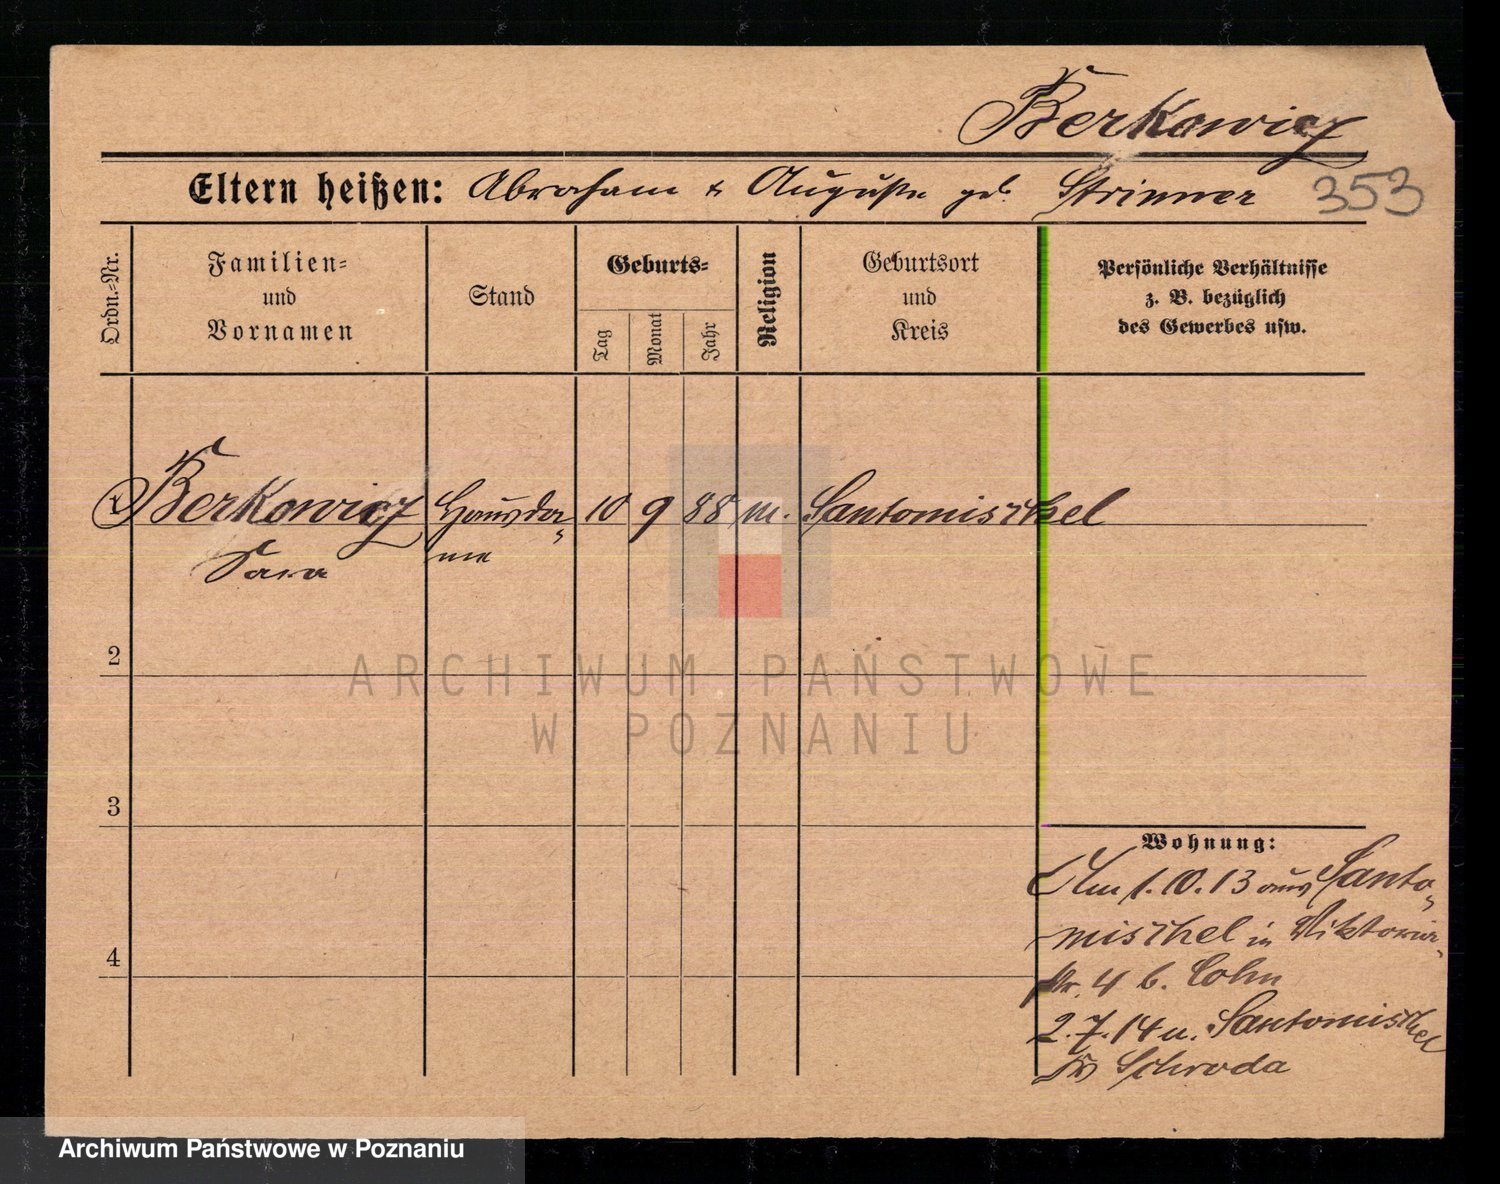 Berkowicz
Eltern heißen: Abraham & Auguste geb. Strimmer
353
Ordn.-Nr.
Familien-
und
Vornamen
Stand
Geburts-
Tag
Monat
Jahr
Religion
Geburtsort
und
Kreis
Persönliche Verhältnisse
z. B. bezüglich
des Gewerbes usw.
Berkowicz Hausda- 10 9 88 m. Santomischel
Sara me
2
ARCHIWUM PAŃSTWOWE
W POZNANIU
3
Wohnung:
Am 1.10.13 aus Santo-
mischel in Viktoria-
4
str. 4 b. Cohn
2.7.14 n. Santomischel
Kr Schroda
Archiwum Państwowe w Poznaniu